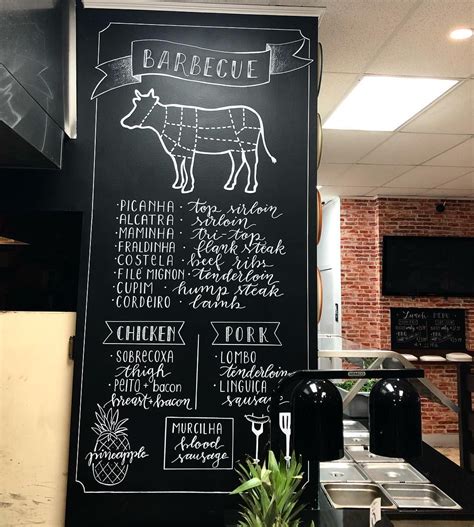 BARBECUE
·PICANHA: top sirloin
·ALCATRA: sirloin
·MAMINHA: tri-top
·FRALDINHA: flank steak
·COSTELA: beef ribs
·FILÉ MIGNON: tenderloin
·CUPIM: hump steak
·CORDEIRO: lamb
CHICKEN
·SOBRECOXA
thigh
·PEITO + bacon
breast+bacon
PORK
·LOMBO
tenderloin
·LINGUIÇA
sausage
pineapple
MURCILHA
blood
sausage
Lunch